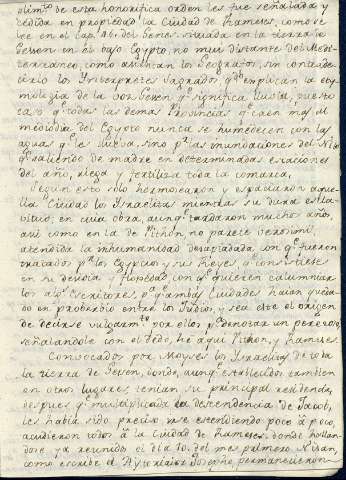 plim.to de esta honorifica orden les fue señalada y
cedida en propiedad la Ciudad de Rameses, como se
lee en el cap. 46. del Genes. situada en la tierra de
Gessen en el bajo Egypto, no mui distante del Medi-
terraneo, como asientan los Geografos, sin contrade-
cirlo los Interpretes Sagrados q.e explican la ety-
mologia de la voz Gessen q.e significa lluvia, puesto
caso q.e todas las demas Provincias q.e caen mas al
mediodia del Egypto nunca se humedecen con las
aguas q.e les llueva, sino p.r las inundaciones del Nilo
q.e saliendo de madre en determinadas estaciones
del año, riega y fertiliza toda la comarca.
Segun esto solo hermosearon y espaciaron aque-
lla Ciudad los Israelitas mientras su dura escla-
vitud, en cuia obra, aunq.e tardaron muchos años,
asi como en la de Pithon, no parece verosimil,
atendida la inhumanidad desapiadada, con q.e fueron
tratados p.r los Egypcios y sus Reyes
en su desidia y floxedad, con q.e quieren calumniar
los alg.s Escritores, p.a q.e ambas Ciudades haian queda-
do en proverbio entre los Judios, y sea este el origen
de decirse vulgarm.te por ellos p.a denotar un perezoso,
señalandole con el dedo, he aqui Pithon, y Rameses.
Convocados por Moyses los Israelitas de toda
la tierra de Gesen, donde, aunq.e establecidos tambien
en otros lugares, tenian su principal residencia,
despues q.e multiplicada la descendencia de Jacob,
les habia sido preciso irse estendiendo poco â poco,
acudieron todos â la Ciudad de Rameses, donde hallan-
dose ya reunidos el dia 10. del mes primero Nisan
como escribe el Historiador Josepho, permanecieron